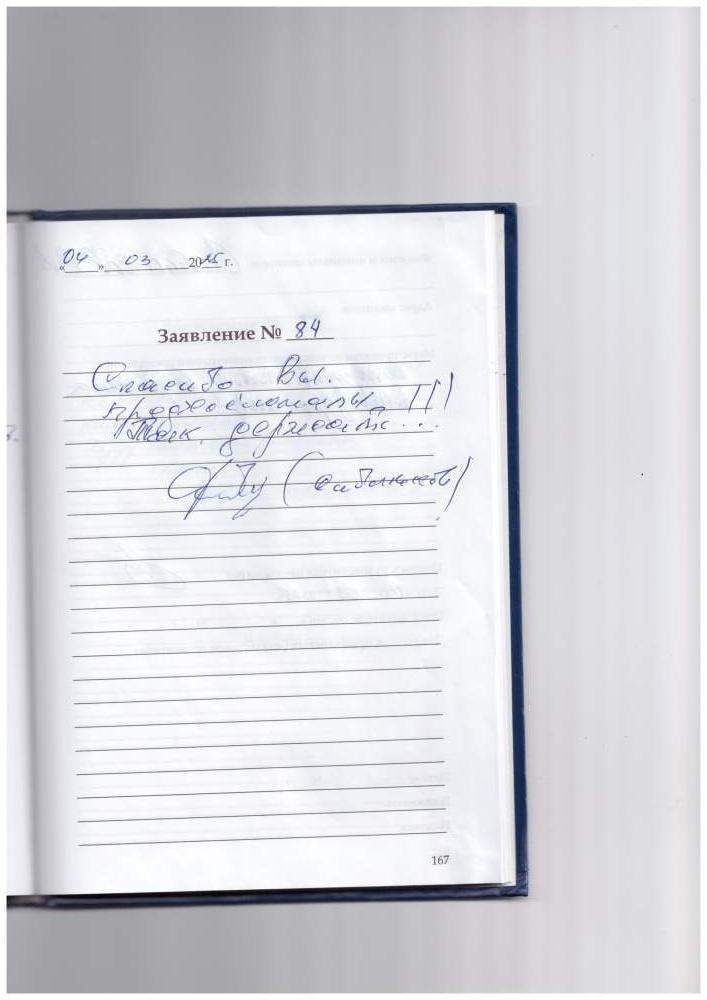 «04» 03 2015 г.
Заявление № 84
Спасибо Вы.
профессионалы !!!
Так держать...
167